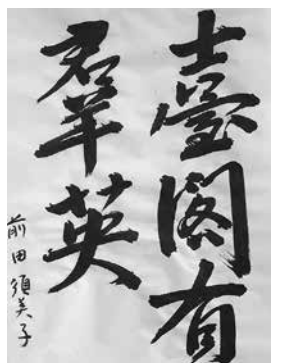 臺閣有
羣英
前田須美子